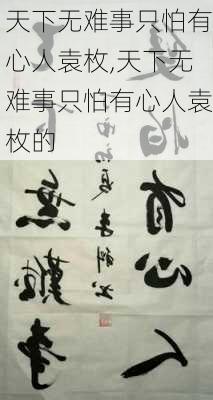 天下无难事只怕有
心人袁枚,天下无
难事只怕有心人袁
枚的
天下無難事
怕有心人